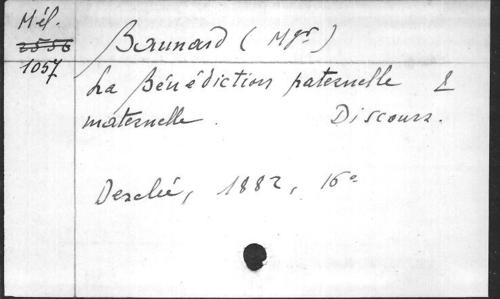 Mél.
2556
1057
Baunard (Mgr)
La Bénédiction paternelle &
maternelle. Discours.
Desclée, 1882, 16°